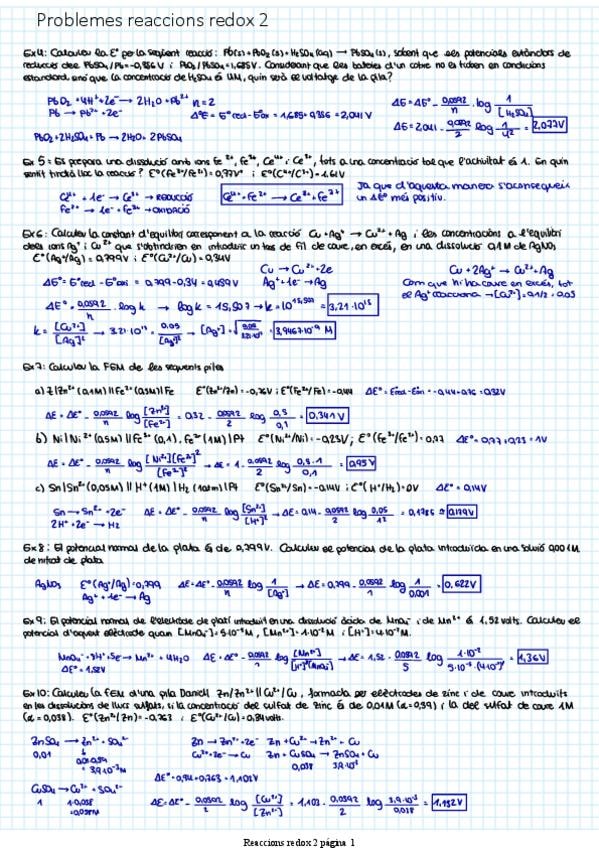 Problemes reaccions redox 2
Ex4: Calculeu la E° per la següent reacció: Pb(s)+PbO2(s)+H2SO4(aq) → PbSO4(s), sabent que els potencials estàndards de
reducció de PbSO4/Pb=-0,356V i PbO2/PbSO4=1,685V. Considerant que les bateries d'un cotxe no es troben en condicions
estandard, sinó que la concentració de H2SO4 és 4M, quin serà el voltatge de la pila?
PbO2 + 4H+ + 2e- → 2H2O + Pb2+ n=2
Pb → Pb2+ + 2e- Δ°E = E°red - E°ox = 1,685+0,356 = 2,041V
ΔE = ΔE° - 0,0592/n · log 1/[H2SO4]
PbO2 + 2H2SO4 + Pb → 2H2O + 2PbSO4
ΔE = 2,041 - 0,0592/2 log 1/4² = 2,077V
Ex 5: Es prepara una dissolució amb ions Fe2+, Fe3+, Ce4+ i Ce3+, tots a una concentració tal que l'activitat és 1. En quin
sentit tindrà lloc la reacció? E°(Fe3+/Fe2+)=0,77V i E°(Ce4+/Ce3+)=1,61V
Ce4+ + 1e- → Ce3+ → REDUCCIÓ
Fe2+ → 1e- + Fe3+ → OXIDACIÓ
Ce4+ + Fe2+ → Ce3+ + Fe3+
Ja que d'aquesta manera s'aconsegueix
un ΔE° més positiu.
Ex6: Calculeu la constant d'equilibri corresponent a la reacció Cu + Ag+ → Cu2+ + Ag i les concentracions a l'equilibri
dels ions Ag+ i Cu2+ que s'obtindrien en introduir un tros de fil de coure, en excés, en una dissolució 0,1M de AgNO3
E°(Ag+/Ag)=0,799V i E°(Cu2+/Cu)=0,34V
Cu → Cu2+ + 2e
Cu + 2Ag+ → Cu2+ + Ag
ΔE° = E°red - E°oxi = 0,799-0,34 = 0,459V
Ag+ + 1e- → Ag
Com que hi ha coure en excés, tot
ΔE° = 0,0592/n · log k → log k = 15,507 → k = 10^15,507 = 3,21·10^15
k = [Cu2+]/[Ag]² → 3,21·10^15 = 0,05/[Ag]²
Ex7: Calculeu la FEM de les següents piles
a) Z|Zn2+ (0,1M) || Fe2+ (0,5M) | Fe E°(Zn2+/Zn)=-0,76V ; E°(Fe2+/Fe)=-0,44 ΔE° = Ered-Eoxi = -0,44+0,76 = 0,32V
ΔE = ΔE° - 0,0592/n log [Zn2+]/[Fe2+] = 0,32 - 0,0592/2 log 0,5/0,1 = 0,341V
b) Ni|Ni2+ (0,5M) || Fe3+ (0,1), Fe2+ (1M) | Pt E°(Ni2+/Ni)=-0,23V ; E°(Fe3+/Fe2+)=0,77 ΔE° = 0,77+0,23 = 1V
ΔE = ΔE° - 0,0592/n log [Ni2+][Fe2+]²/[Fe3+]² → ΔE = 1 - 0,0592/2 log 0,5·1/0,1 = 0,95V
c) Sn|Sn2+ (0,05M) || H+ (1M) | H2 (1atm) | Pt E°(Sn2+/Sn)=-0,14V i E°(H+/H2)=0V ΔE° = 0,14V
Sn → Sn2+ + 2e-
2H+ + 2e- → H2
ΔE = ΔE° - 0,0592/n log [Sn2+]/[H+]² → ΔE = 0,14 - 0,0592/2 log 0,05/1² = 0,1785 ≈ 0,179V
Ex8: El potencial normal de la plata és de 0,799V. Calculeu el potencial de la plata introduïda en una solució 0,001M
de nitrat de plata
AgNO3 E°(Ag+/Ag)=0,799 ΔE = ΔE° - 0,0592/n log 1/[Ag+] → ΔE = 0,799 - 0,0592/1 log 1/0,001 = 0,622V
Ag+ + 1e- → Ag
Ex9: El potencial normal de l'elèctrode de platí introduït en una dissolució àcida de MnO4- i de Mn2+ és 1,52 volts. Calculeu el
potencial d'aquest elèctrode quan [MnO4-]=5·10-3M, [Mn2+]=1·10-2M i [H+]=4·10-3M.
MnO4- + 8H+ + 5e → Mn2+ + 4H2O
ΔE° = 1,52V
ΔE = ΔE° - 0,0592/n log [Mn2+]/[H+]8[MnO4-] → ΔE = 1,52 - 0,0592/5 log = 1,36V
Ex10: Calculeu la FEM d'una pila Daniell Zn/Zn2+ || Cu2+/Cu, formada per elèctrodes de zinc i de coure introduïts
en les dissolucions de llurs sulfats, si la concentració del sulfat de zinc és de 0,01M (α=0,39) i la del sulfat de coure 1M
(α=0,038). E°(Zn2+/Zn)=-0,763 i E°(Cu2+/Cu)=0,34 volts.
ZnSO4 → Zn2+ + SO42-
Zn → Zn2+ + 2e- Zn + Cu2+ → Zn2+ + Cu
0,01 0,01·0,39
Cu2+ + 2e- → Cu Zn + CuSO4 → ZnSO4 + Cu
=3,9·10-3M
0,038 3,9·10-3
CuSO4 → Cu2+ + SO42-
ΔE° = 0,34+0,763 = 1,103V
1 1·0,038
=0,038M
ΔE = ΔE° - 0,0592/n log [Cu2+]/[Zn2+] = 1,103 - 0,0592/2 log 3,9·10-3/0,038 = 1,132V
Reaccions redox 2 página 1